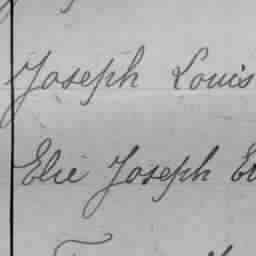 Joseph Louis
Elie Joseph